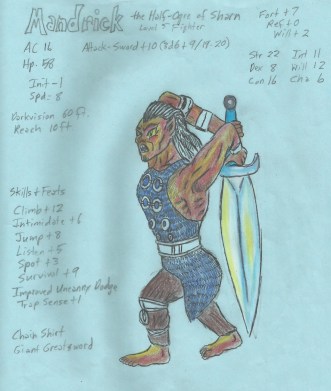 Mandrick the Half-Ogre of Sharn
Level 5 Fighter
Fort +7
Ref +0
Will +2
AC 16
Attack-Sword +10 /19-20)
Hp. 58
Init -1
Spd: 8
Str 22 Int 11
Dex 8 Will 12
Con 16 Cha 6
Darkvision 60 ft.
Reach 10 ft.
Skills + Feats
Climb +12
Intimidate +6
Jump +8
Listen +5
Spot +3
Survival +9
Improved Uncanny Dodge
Trap Sense +1
Chain Shirt
Giant Greatsword